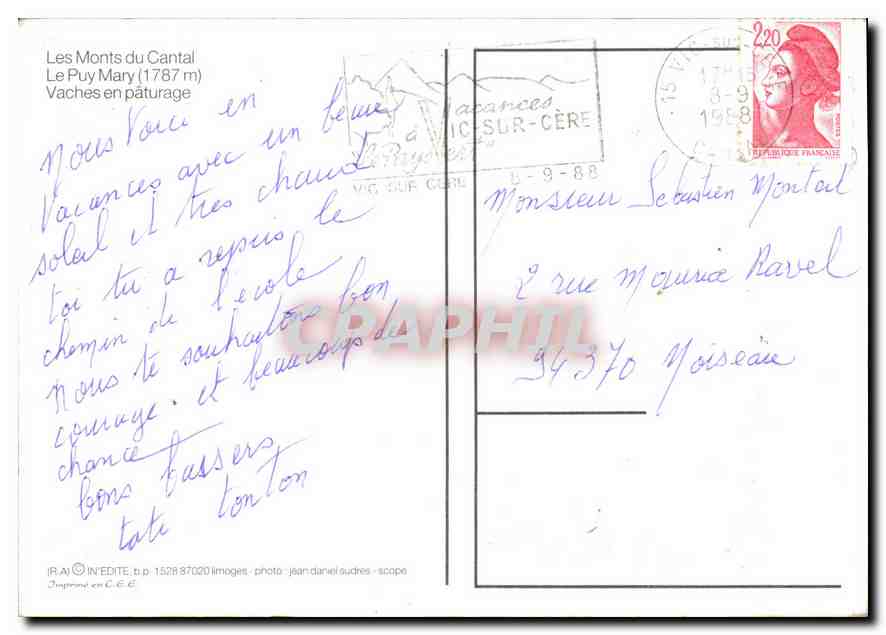 Les Monts du Cantal
Le Puy Mary (1787 m)
Vaches en pâturage
Nous voici en
vacances avec un beau
soleil et très chaud
toi tu a repris le
chemin de l'école
Nous te souhaitons bon
courage et beaucoup de
chance
bons bassers
tati tonton
(R.A) © IN'EDITE, b.p. 1528 87020 limoges - photo : jean daniel sudres - scope
Imprimé en C.E.E.
Vacances
à VIC-SUR-CÈRE
"Le Pays vert"
VIC SUR CERE 8-9-88
15 VIC-SUR-CERE
17H15
8-9
1988
2,20
POSTES
REPUBLIQUE FRANÇAISE
Monsieur Sébastien Monteil
2 rue Maurice Ravel
94370 Noiseau
CPARAMA